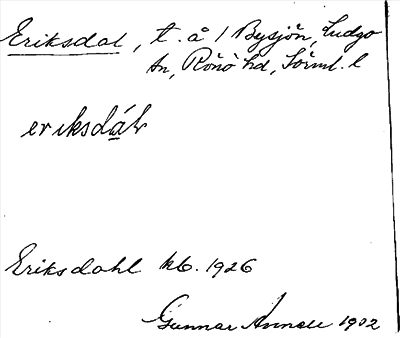 Eriksdal, t. å 1 Bysjön, Ludgo
sn, Rönö hd, Sörml. l
eriksdál
Eriksdahl kb. 1926
Gunnar 1932